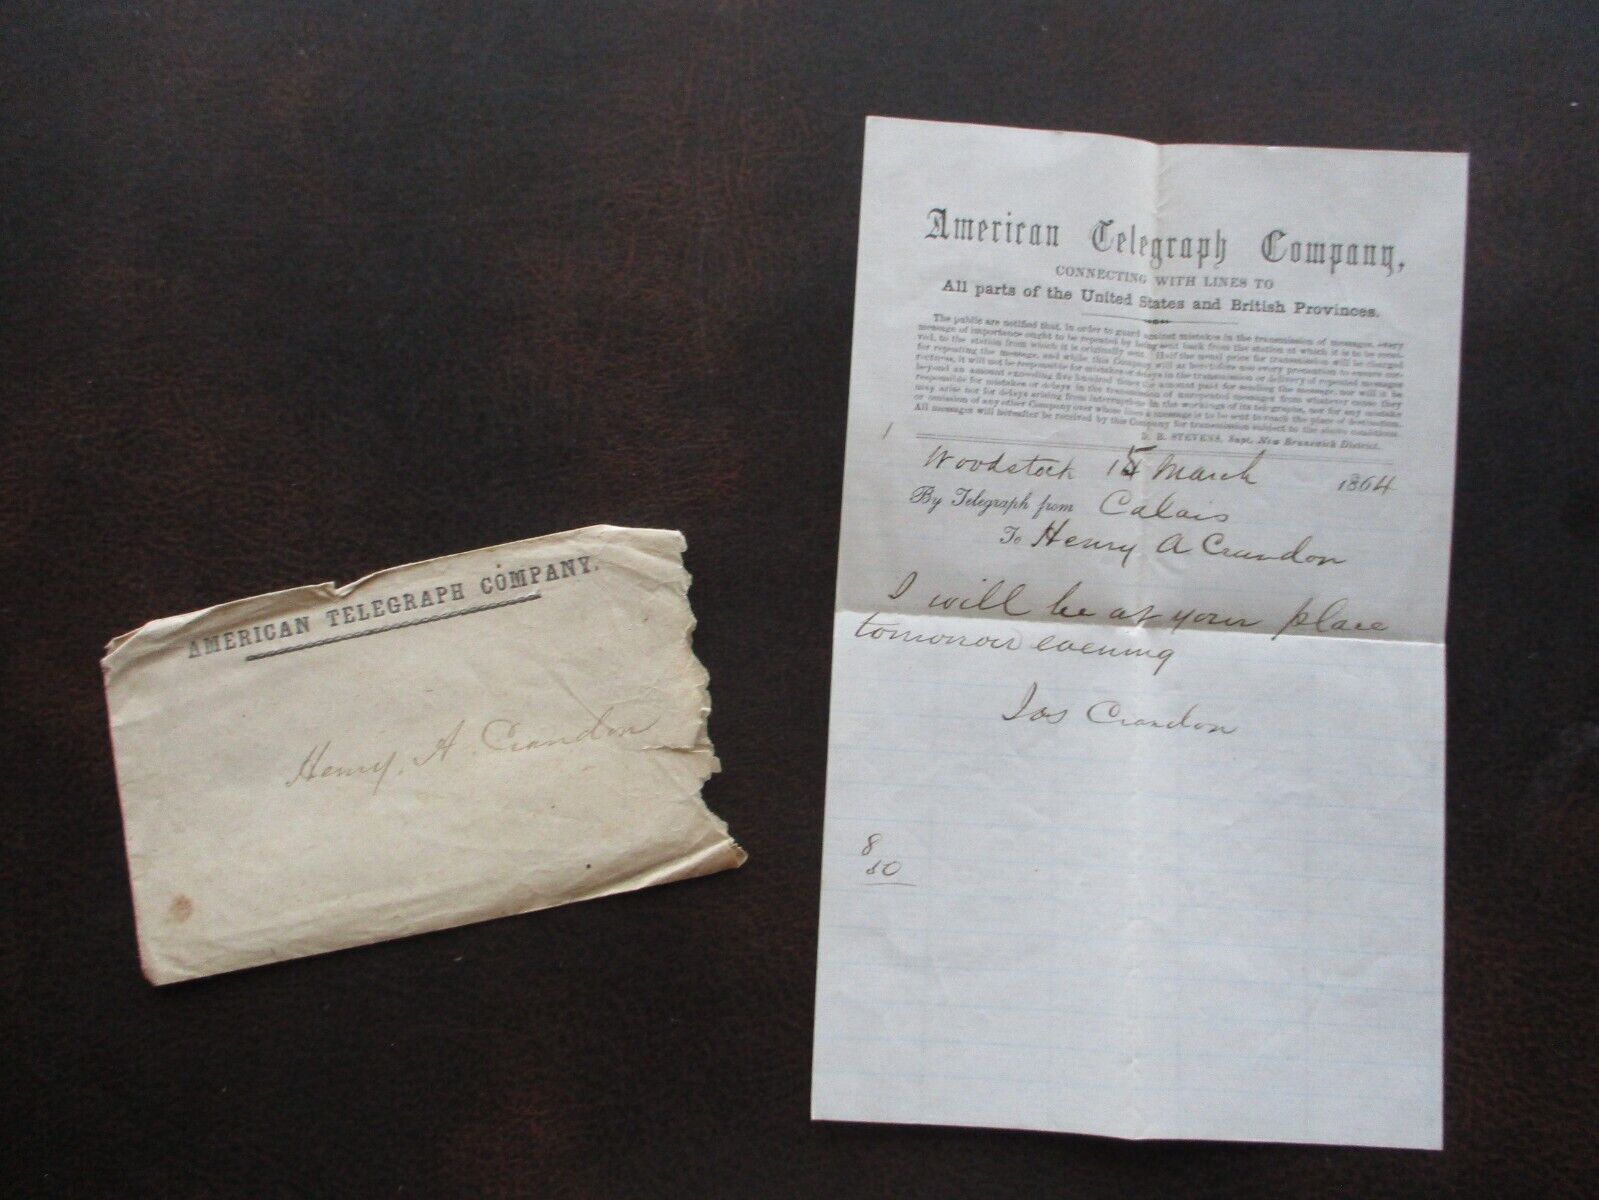 AMERICAN TELEGRAPH COMPANY.
Henry. A. Crandon
American Telegraph Company,
CONNECTING WITH LINES TO
All parts of the United States and British Provinces.
The public are notified that, in order to guard against mistakes in the transmission of messages, every
message of importance ought to be repeated by being sent back from the station at which it is to be recei-
ved, to the station from which it is originally sent. Half the usual price for transmission will be charged
for repeating the message, and while this Company will as heretofore use every precaution to ensure cor-
rectness, it will not be responsible for mistakes or delays in the transmission or delivery of repeated messages
beyond an amount exceeding five hundred times the amount paid for sending the message, nor will it be
responsible for mistakes or delays in the transmission of unrepeated messages from whatever cause they
may arise nor for delays arising from interruption in the workings of its telegraphs, nor for any mistake
or omission of any other Company over whose lines a message is to be sent to reach the place of destination.
All messages will hereafter be received by this Company for transmission subject to the above conditions.
B. STEVENS, Supt. New Brunswick District.
Woodstock March 1864
By Telegraph from Calais
To Henry A Crandon
I will be at your place
tomorrow evening
Jos Crandon
8
50